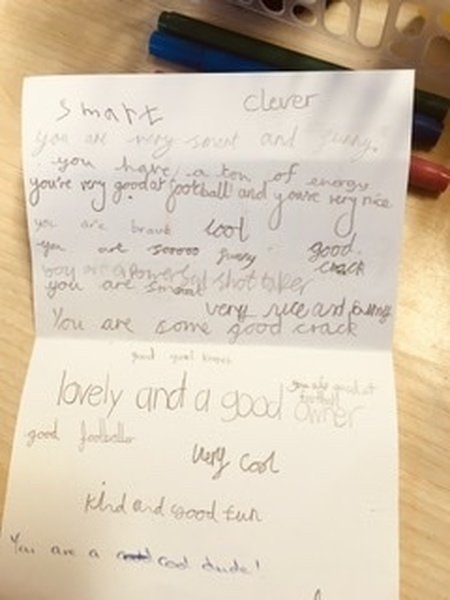 smart clever
you are very smart and funny.
you have a ton of energy
you're very good at football! and you're very nice
you are brave cool
you are sooooo funny good
crack
you are a powerful shot taker
you are smart
very nice and funny
You are some good crack
good goal
you are good at
football
lovely and a good owner
good footballer
very cool
kind and good fun
You are a cool dude!